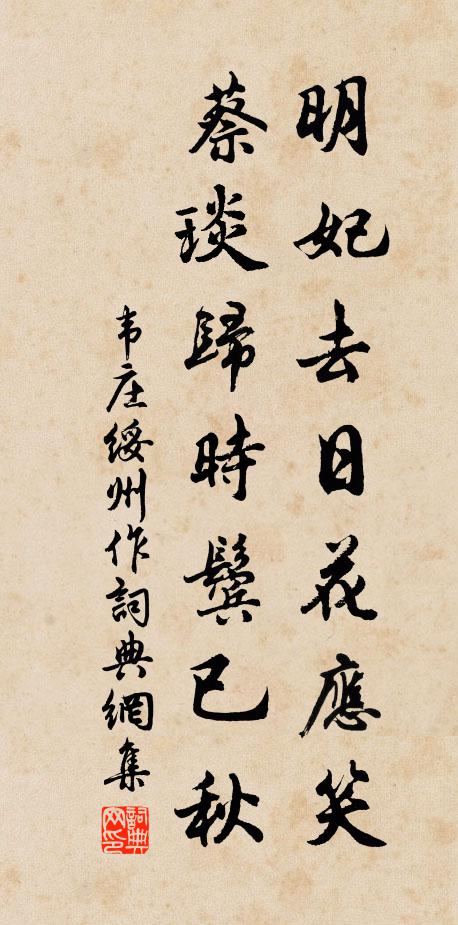 明妃去日花應笑
蔡琰歸時鬢已秋
韦庄綏州作詞典網集
詞典网印